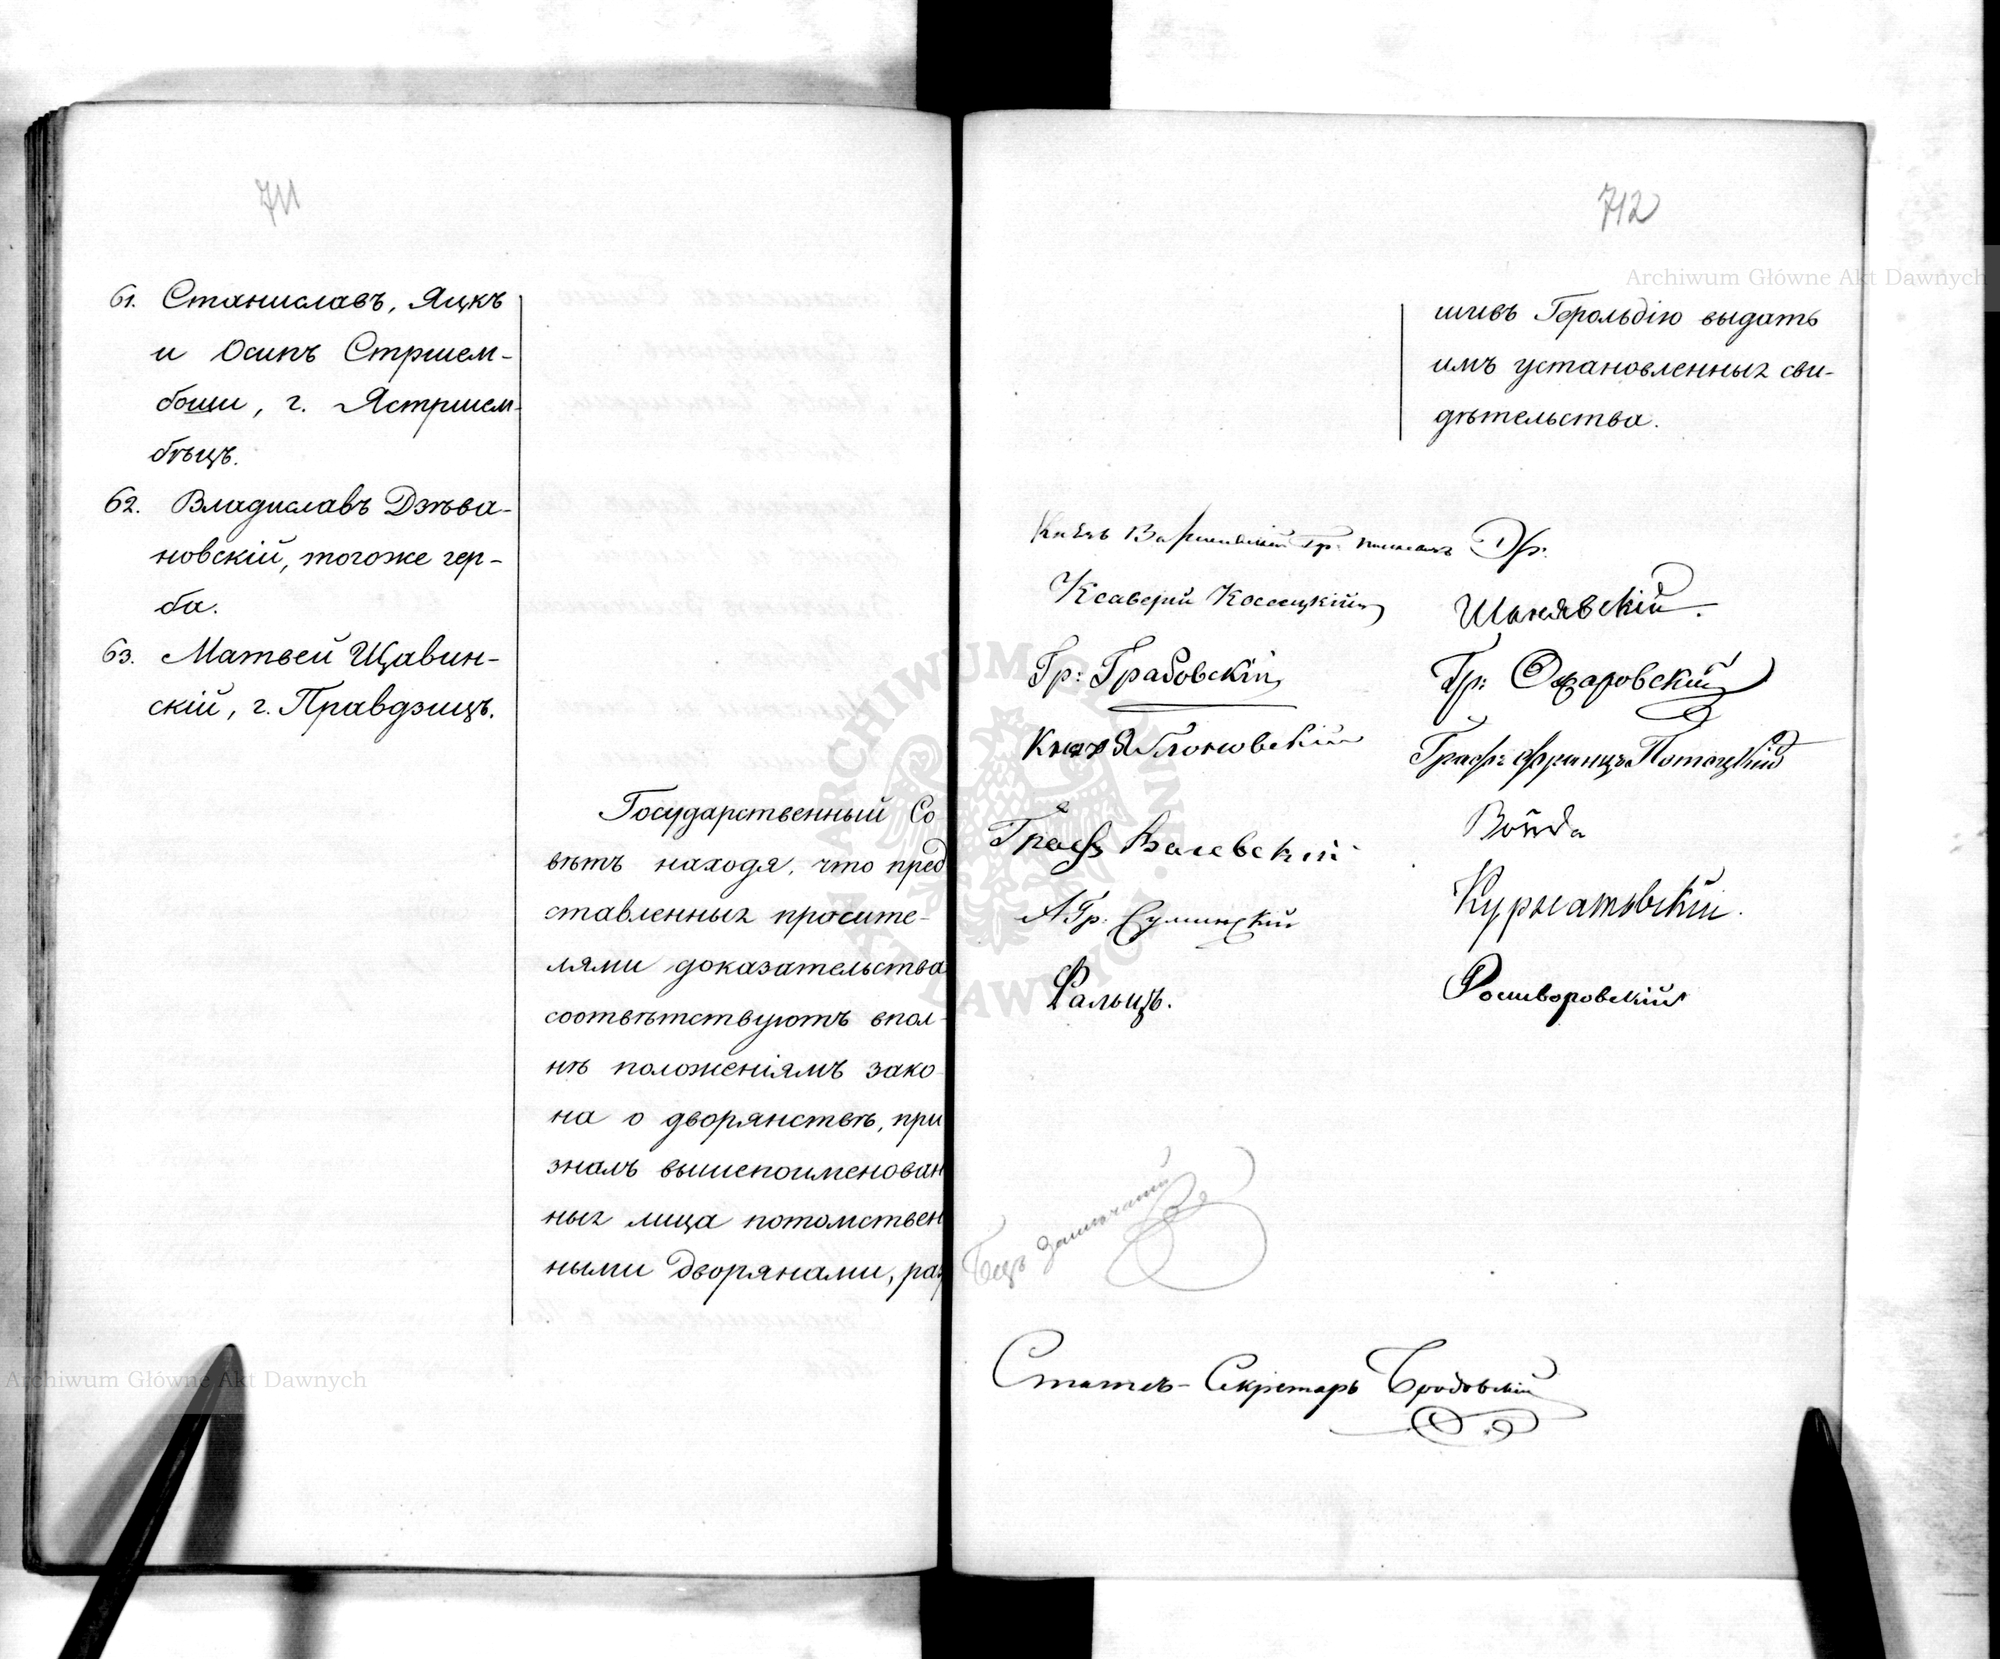 711
61. Станиславъ, Яцкъ
и Осипъ Стржем-
боши, г. Ястржем-
бѣцъ.
62. Владиславъ Дзѣва-
новскій, тогоже гер-
ба.
63. Матвей Щавин-
скій, г. Правдзицъ.
Государственный Со
вѣтъ находя, что пред
ставленныя просите-
лями доказательства
соотвѣтствуютъ впол-
нѣ положеніямъ зако
на о дворянствѣ, при
зналъ вышепоименован
ныя лица потомствен
ными дворянами, раз
712
Archiwum Główne Akt Dawnych
шивъ Герольдію выдать
имъ установленныя сви-
дѣтельства.
Князь Варшавскій Гр:
Ксаверій Коссецкій
Шанявскій.
Гр: Грабовскій
Гр: Ожаровскій
Князь Яблоновскій
Графъ Францъ Потоцкій
Графъ Валевскій
Войда
А Гр. Суминскій
Курнатовскій.
Фальцъ.
Росцворовскій
Статсъ-Секретарь Бродовскій
Archiwum Główne Akt Dawnych
ARCHIWUM GŁÓWNE AKT DAWNYCH